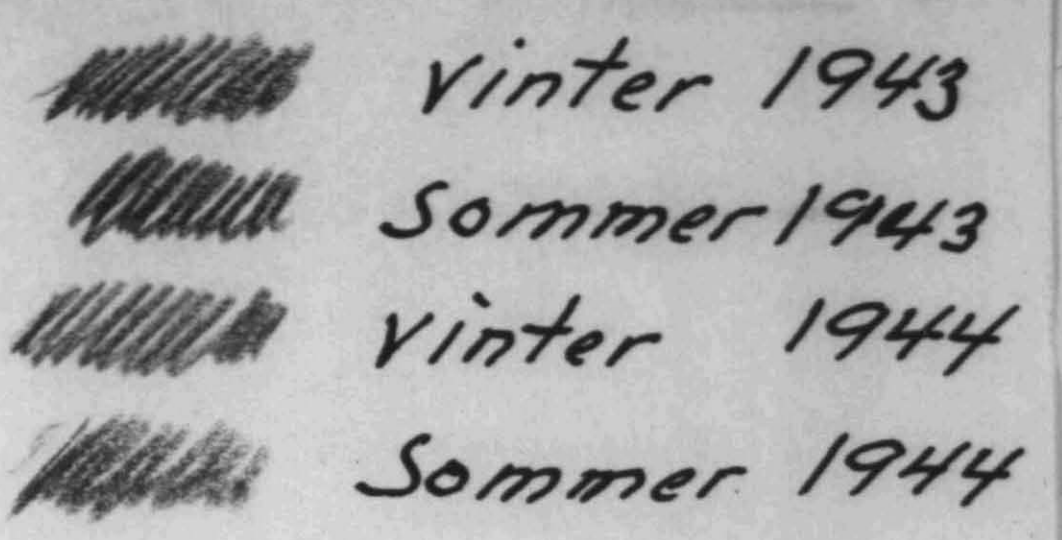 Vinter 1943
Sommer 1943
Vinter 1944
Sommer 1944